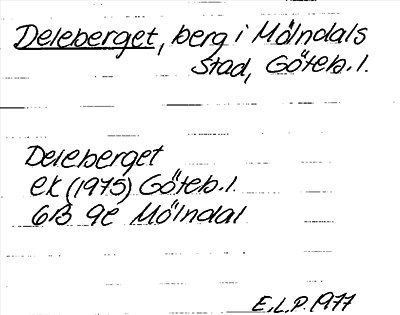 Deleberget, berg i Mölndals
stad, Göteb. l.
Deleberget
ek (1975) Göteb. l.
6B 9e Mölndal
E.L.P. 1977